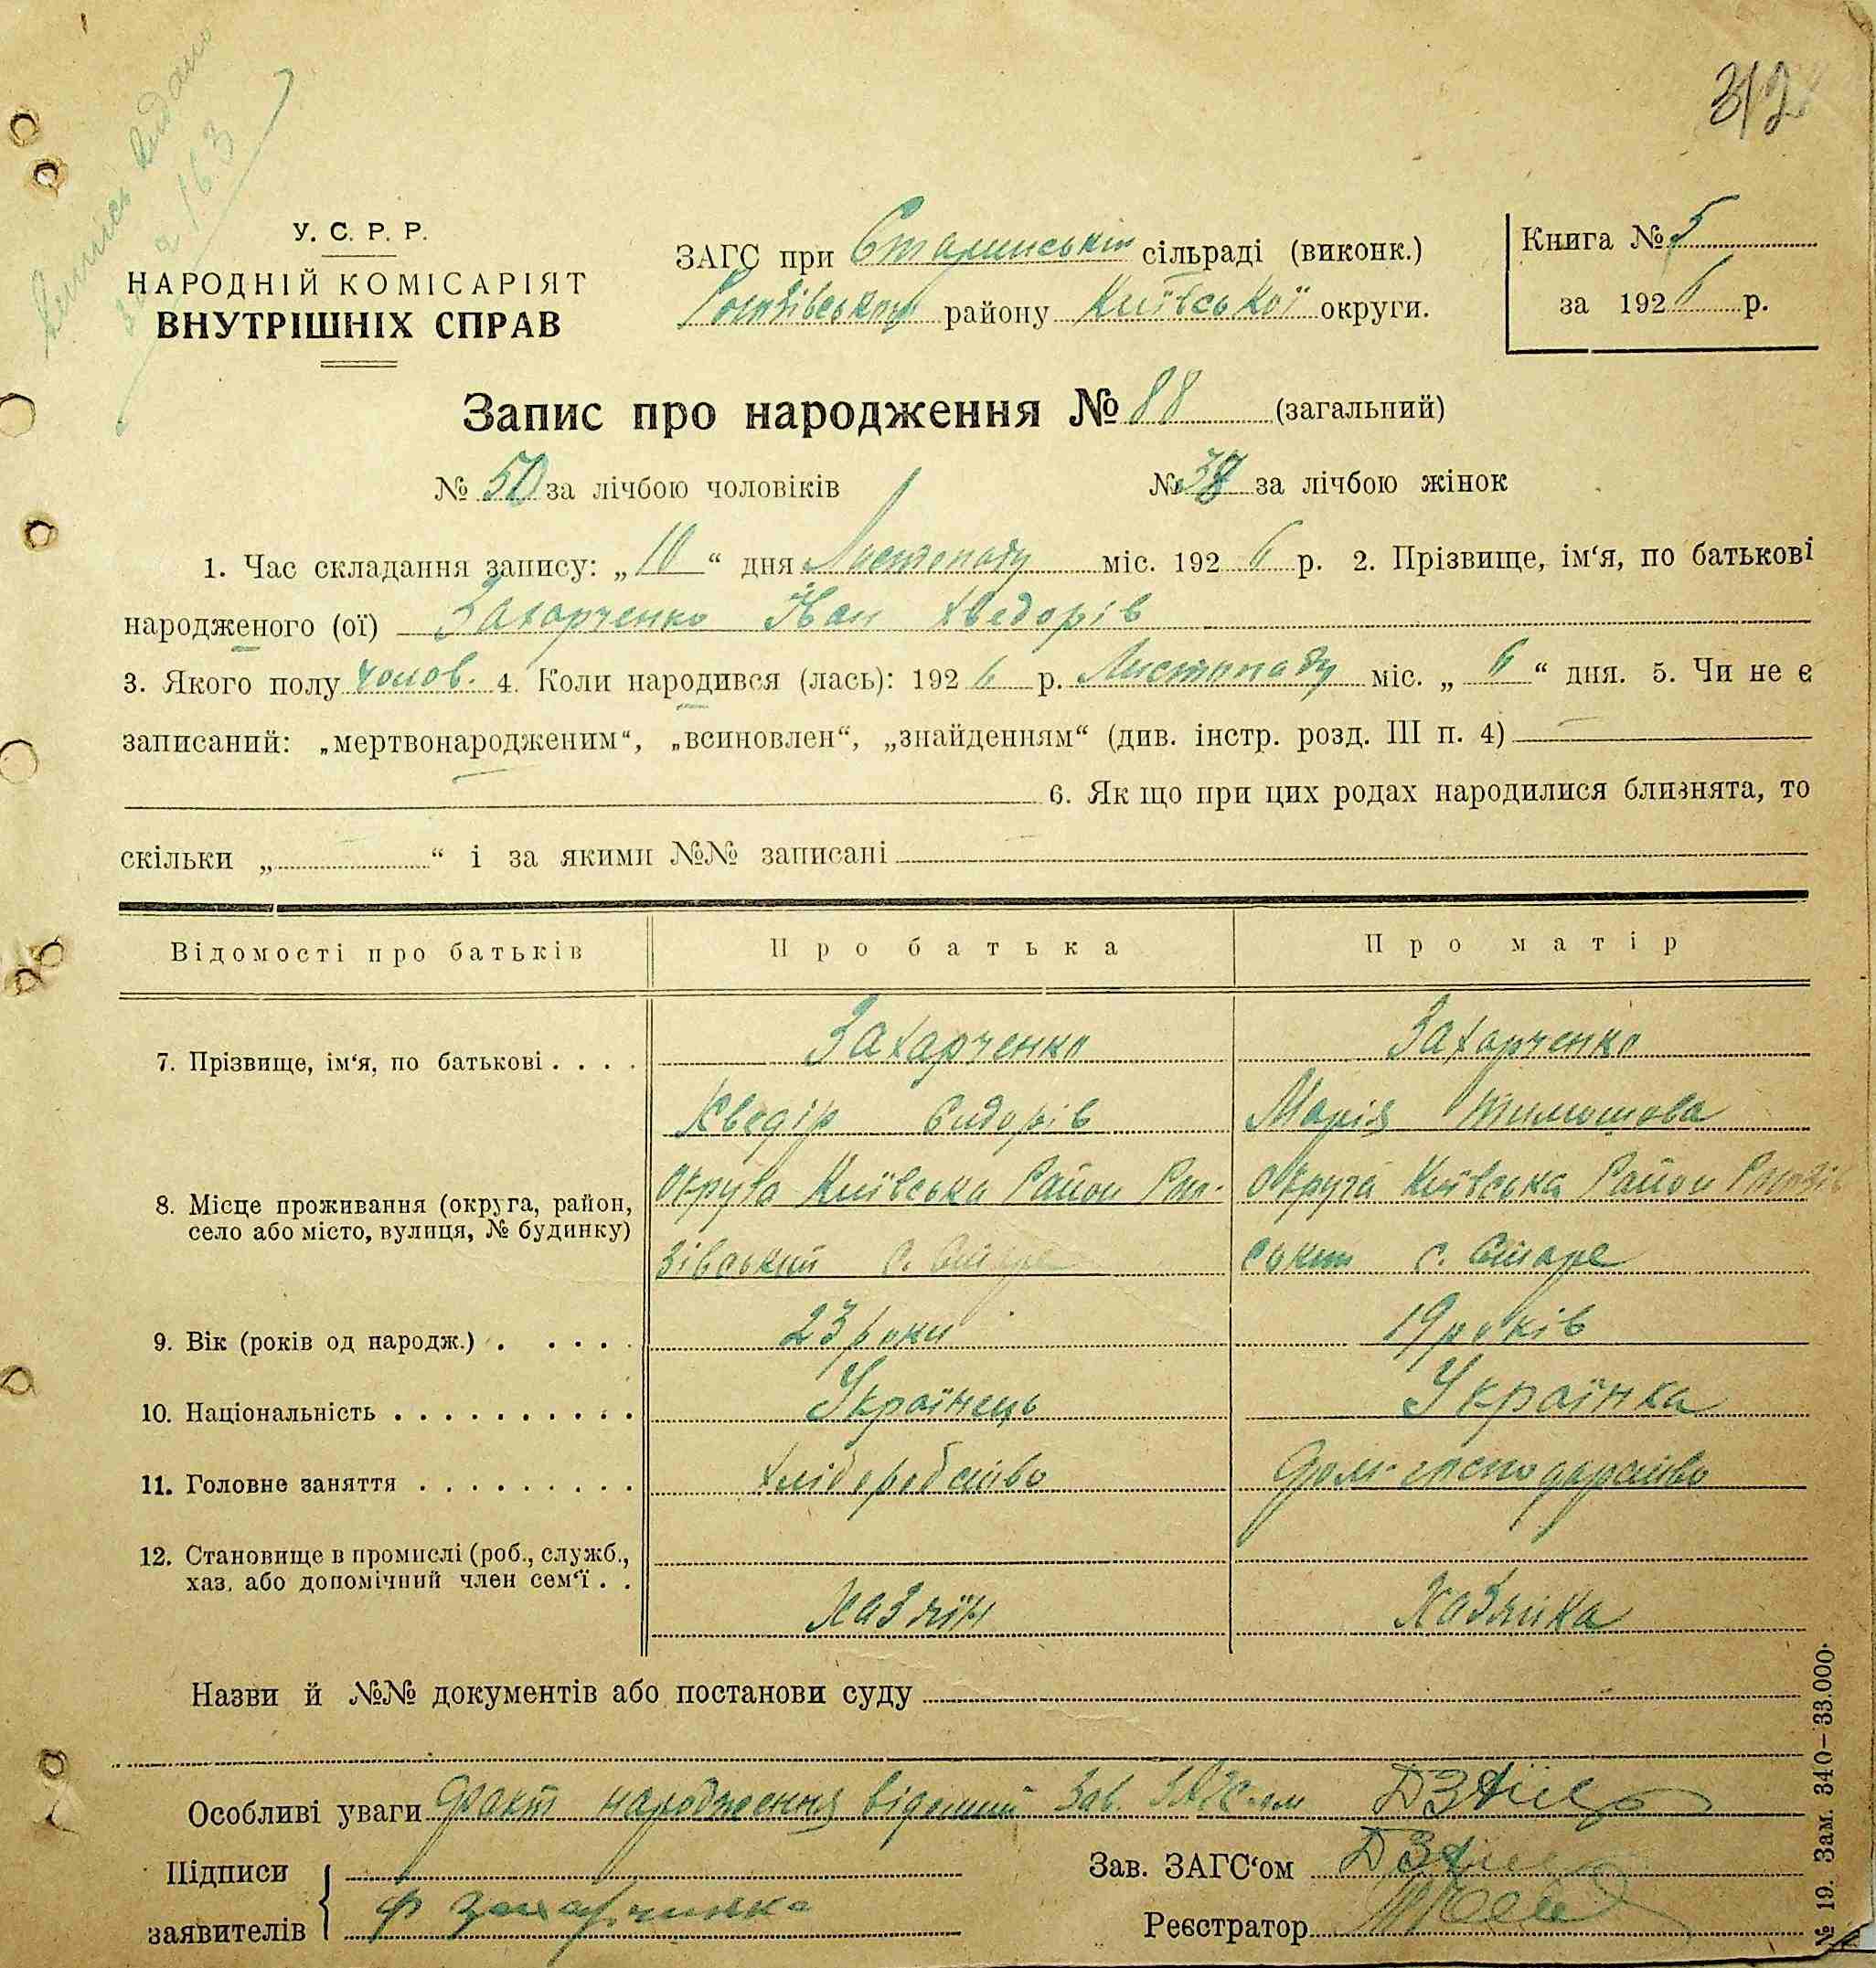 312
Випись видано
У. С. Р. Р.
НАРОДНІЙ КОМІСАРІЯТ
ВНУТРІШНІХ СПРАВ
ЗАГС при Старинській сільраді (виконк.)
району Київської округи.
Книга № 5
за 1926 р.
Запис про народження № 88 (загальний)
№ 50 за лічбою чоловіків № 38 за лічбою жінок
1. Час складання запису: „10“ дня Листопаду міс. 1926 р. 2. Прізвище, ім‘я, по батькові
народженого (ої) Захарченко Іван Хведорів
3. Якого полу чолов. 4. Коли народився (лась): 1926 р. Листопаду міс. „6“ дня. 5. Чи не є
записаний: „мертвонародженим“, „всиновлен“, „знайденням“ (див. інстр. розд. III п. 4)
6. Як що при цих родах народилися близнята, то
скільки „ “ і за якими №№ записані
Відомості про батьків Про батька Про матір
7. Прізвище, ім‘я, по батькові . . . . Захарченко Захарченко
Хведір Сидорів Марія Тимошова
8. Місце проживання (округа, район, Округа Київська Район Округа Київська Район
село або місто, вулиця, № будинку) зівський с. Старе ський с. Старе
9. Вік (років од народж.) . . . . . 23 роки 19 років
10. Національність . . . . . . . . . . Українець Українка
11. Головне заняття . . . . . . . . . Хліборобство Дом-господарство
12. Становище в промислі (роб., служб.,
хаз. або допомічний член сем‘ї . . Хазяїн Хазяйка
Назви й №№ документів або постанови суду
Особливі уваги Факт народження відомий Зав. ЗАГС-ом
Підписи
заявителів Ф Захарченко
Зав. ЗАГС‘ом
Реєстратор
№ 19. Зам. 340–33.000.